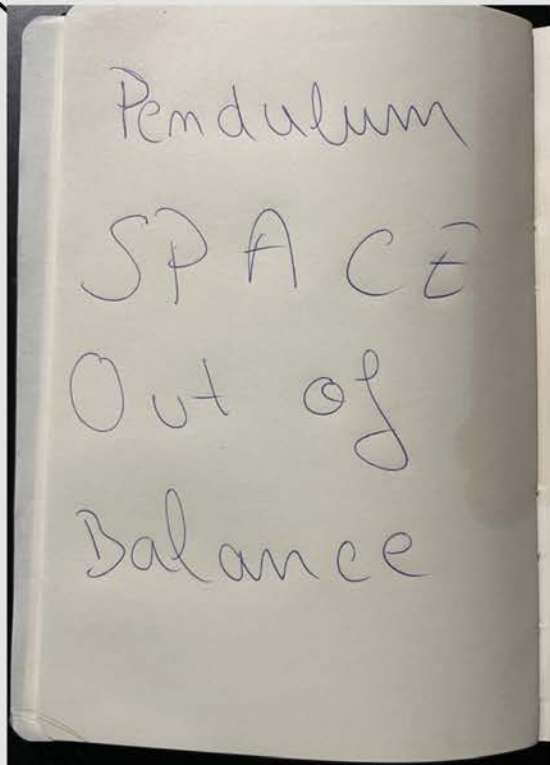 Pendulum
SPACE
Out of
Balance